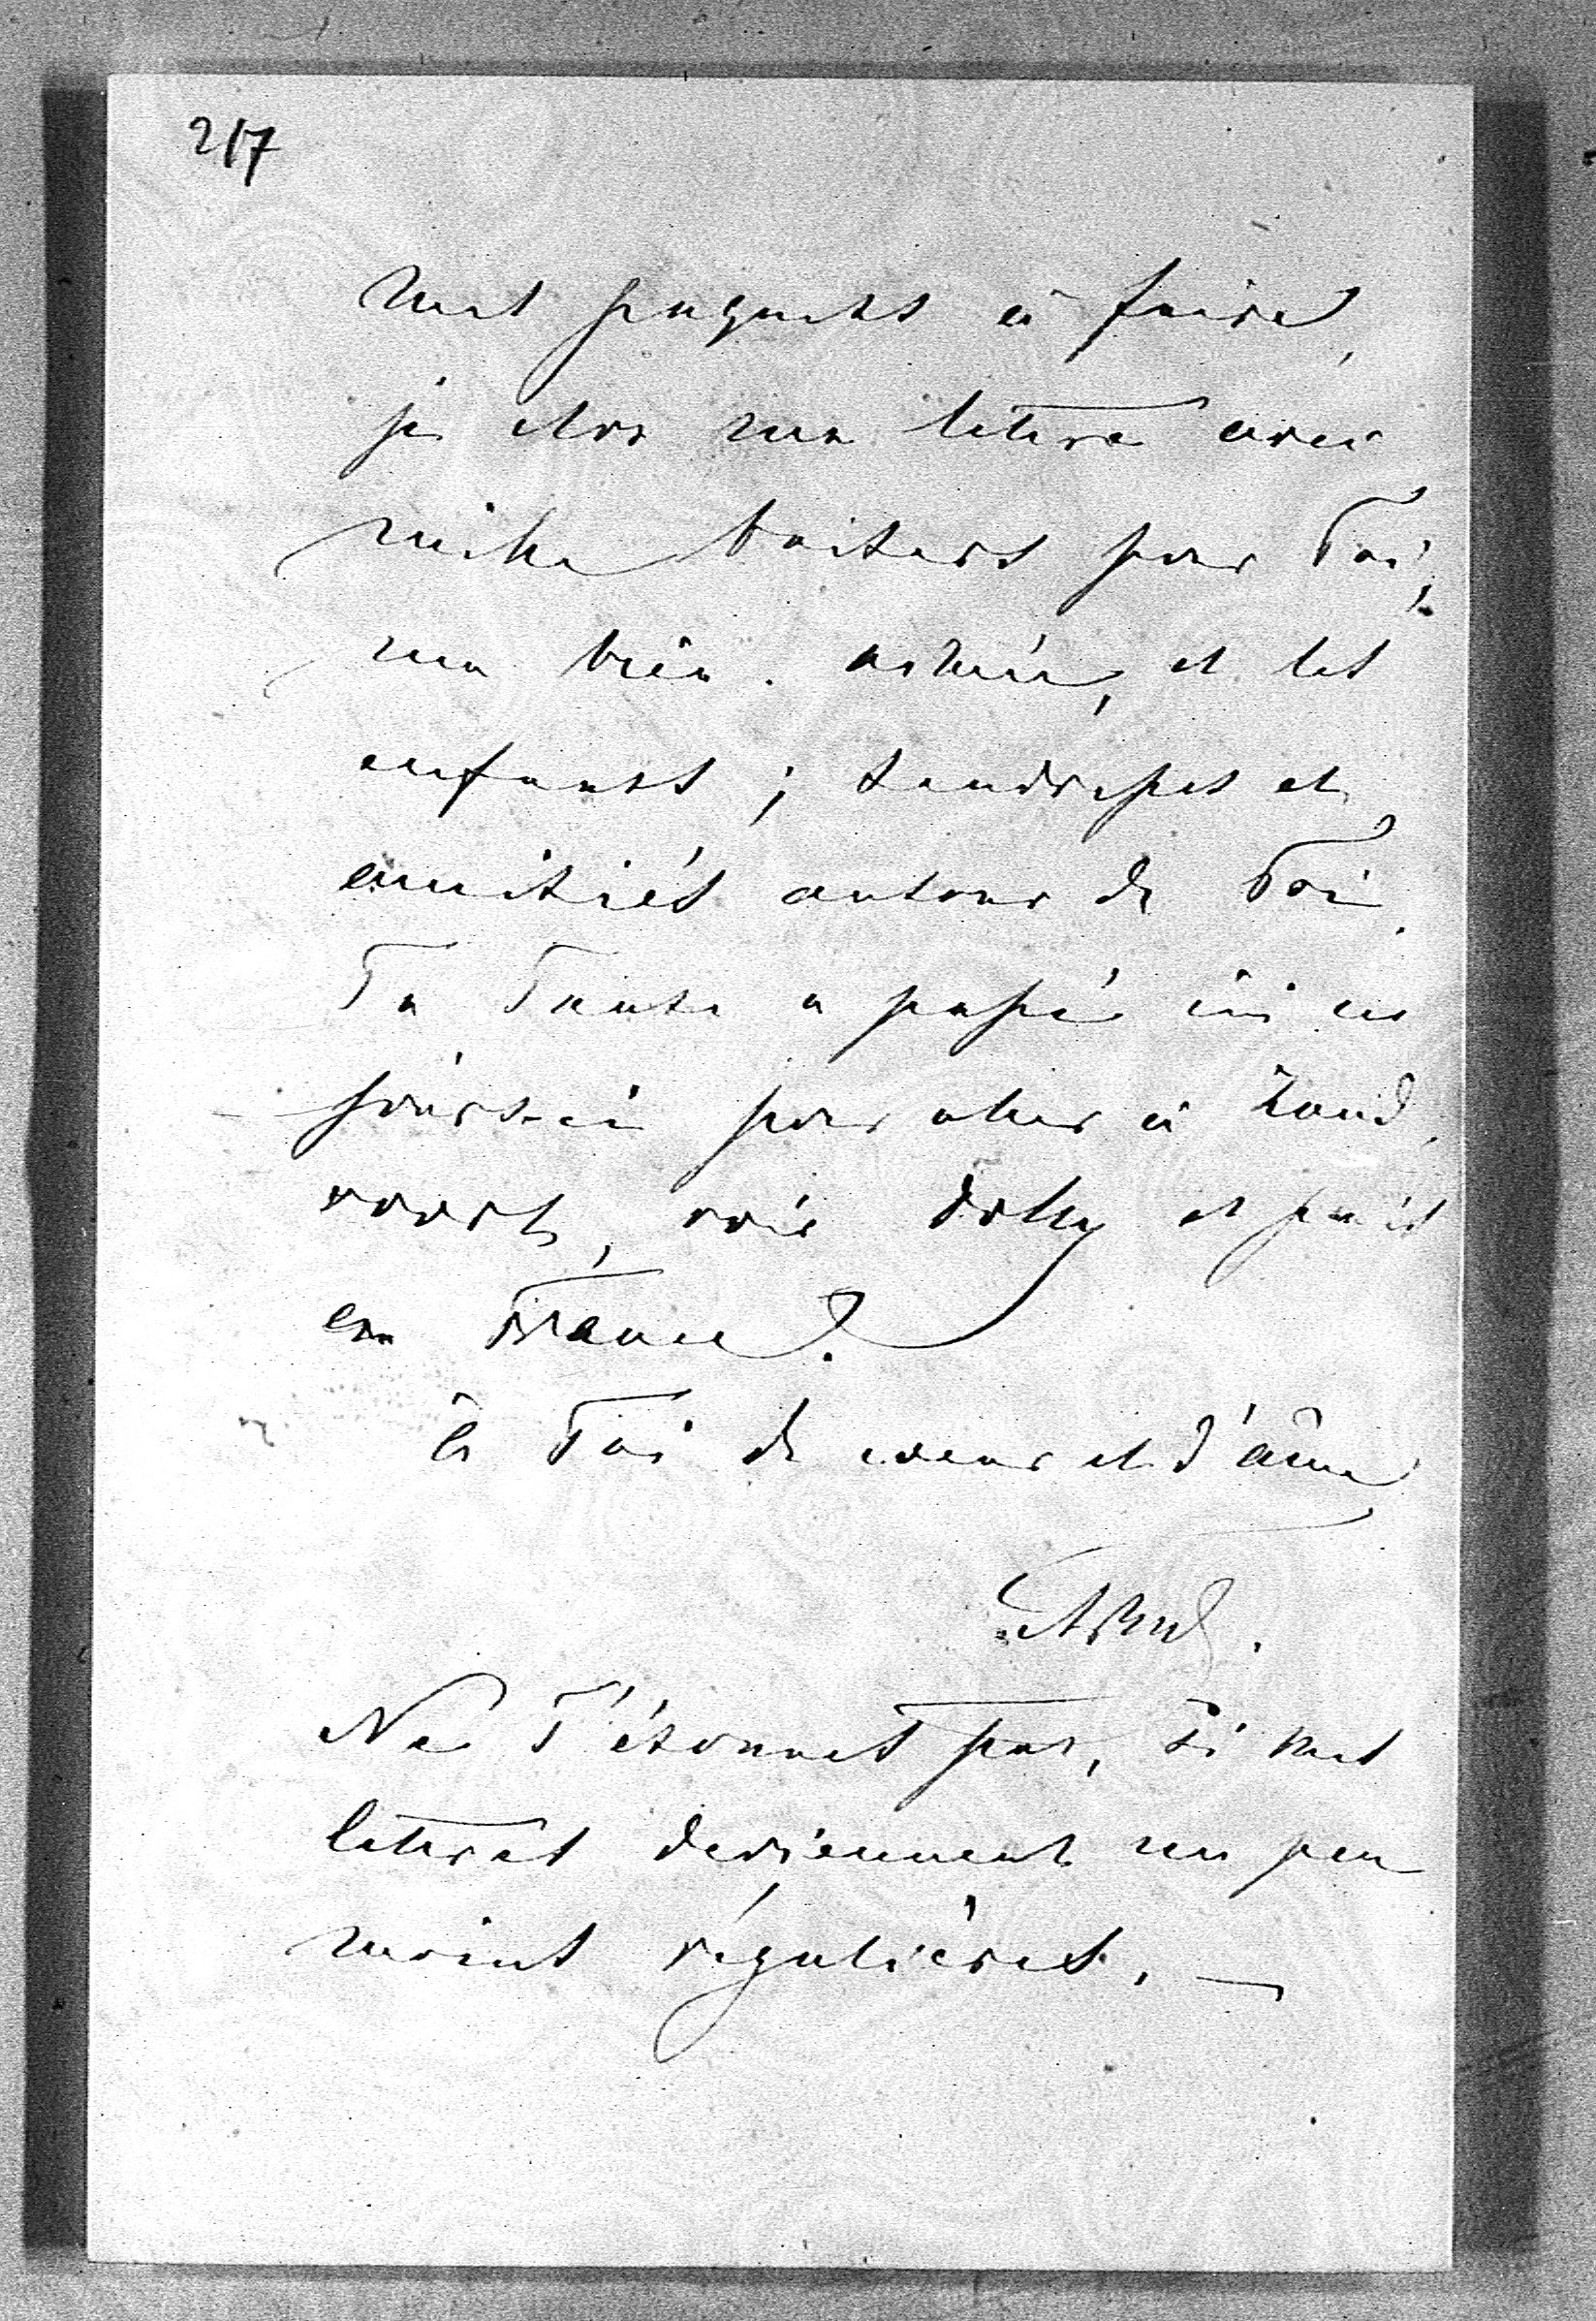 217
mes paquets à faire,
je clos ma lettre avec
mille baisers pour Toi,
ma bien. aimée, et les
enfants ; tendresses et
amitiés autour de Toi.
Ta Tante a passé ici ces
jours-ci pour aller à Zand,
voort, voir Dolly et puis
en France.
à Toi de coeur et d'âme
Ne T'étonnes pas, si mes
lettres deviennent un peu
moins régulières. —